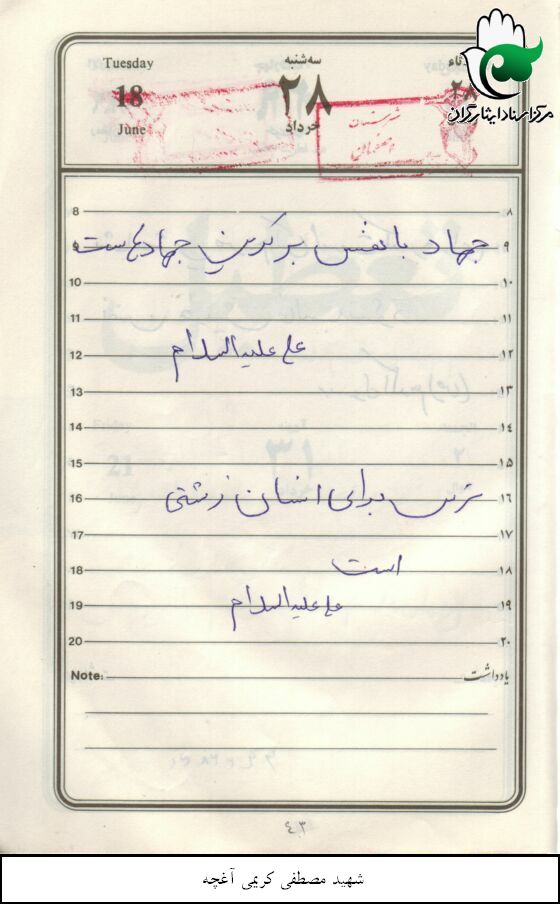 Tuesday
18
June
سه‌شنبه
۲۸
خرداد
مرکز اسناد ایثارگران
8 ۸
جهاد با نفس برترین جهادهاست
9 ۹
10 ۱۰
11 ۱۱
علی علیه السلام
12 ۱۲
13 ۱۳
14 ۱۴
15 ۱۵
ترس برای انسان زشتی
16 ۱۶
17 ۱۷
است
18 ۱۸
علی علیه السلام
19 ۱۹
20 ۲۰
Note: یادداشت
۴۳
شهید مصطفی کریمی آغچه